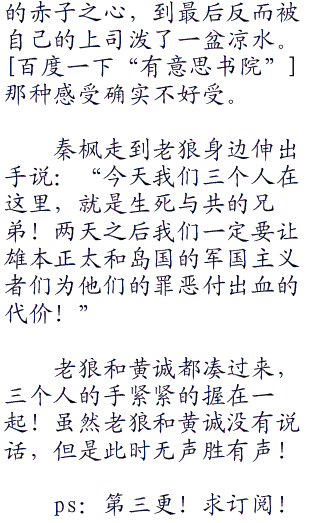 的赤子之心，到最后反而被
自己的上司泼了一盆凉水。
[百度一下“有意思书院”]
那种感受确实不好受。
秦枫走到老狼身边伸出
手说：“今天我们三个人在
这里，就是生死与共的兄
弟！两天之后我们一定要让
雄本正太和岛国的军国主义
者们为他们的罪恶付出血的
代价！”
老狼和黄诚都凑过来，
三个人的手紧紧的握在一
起！虽然老狼和黄诚没有说
话，但是此时无声胜有声！
ps：第三更！求订阅！